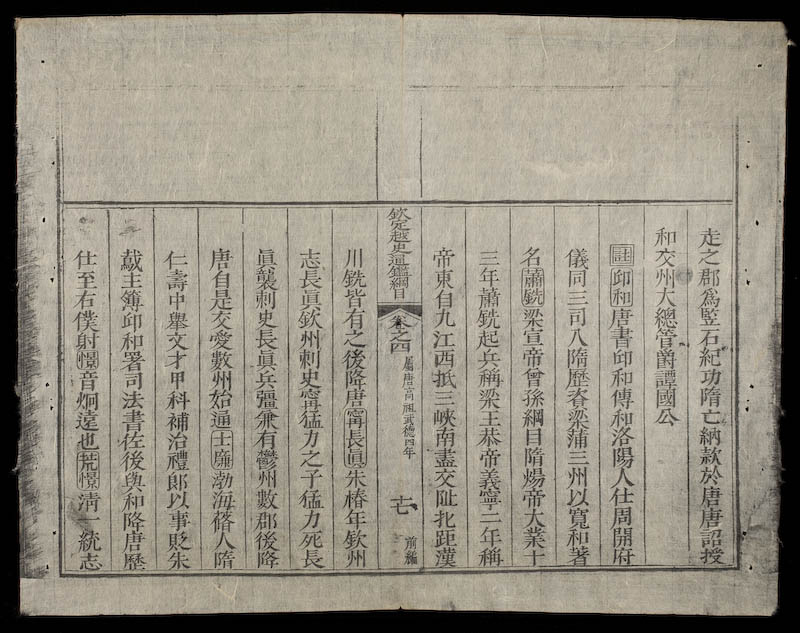 走之郡為竪石紀功隋亡納款於唐唐詔授
和交州大總管爵譚國公
註邱和唐書邱和傳和洛陽人仕周開府
儀同三司入隋歷資梁蒲三州以寬和著
名蕭銑梁宣帝曾孫綱目隋煬帝大業十
三年蕭銑起兵稱梁王恭帝義寧二年稱
帝東自九江西抵三峽南盡交阯北距漢
欽定越史通鑑綱目 卷之四 屬唐高祖武德四年 十七 前編
川銑皆有之後降唐甯長眞朱椿年欽州
志長眞欽州刺史甯猛力之子猛力死長
眞襲刺史長眞兵彊兼有鬱州數郡後降
唐自是交愛數州始通士廉渤海脩人隋
仁壽中舉文才甲科補治禮郎以事貶朱
鳶主簿邱和署司法書佐後與和降唐歷
仕至右僕射憬音炯遠也荒憬清一統志